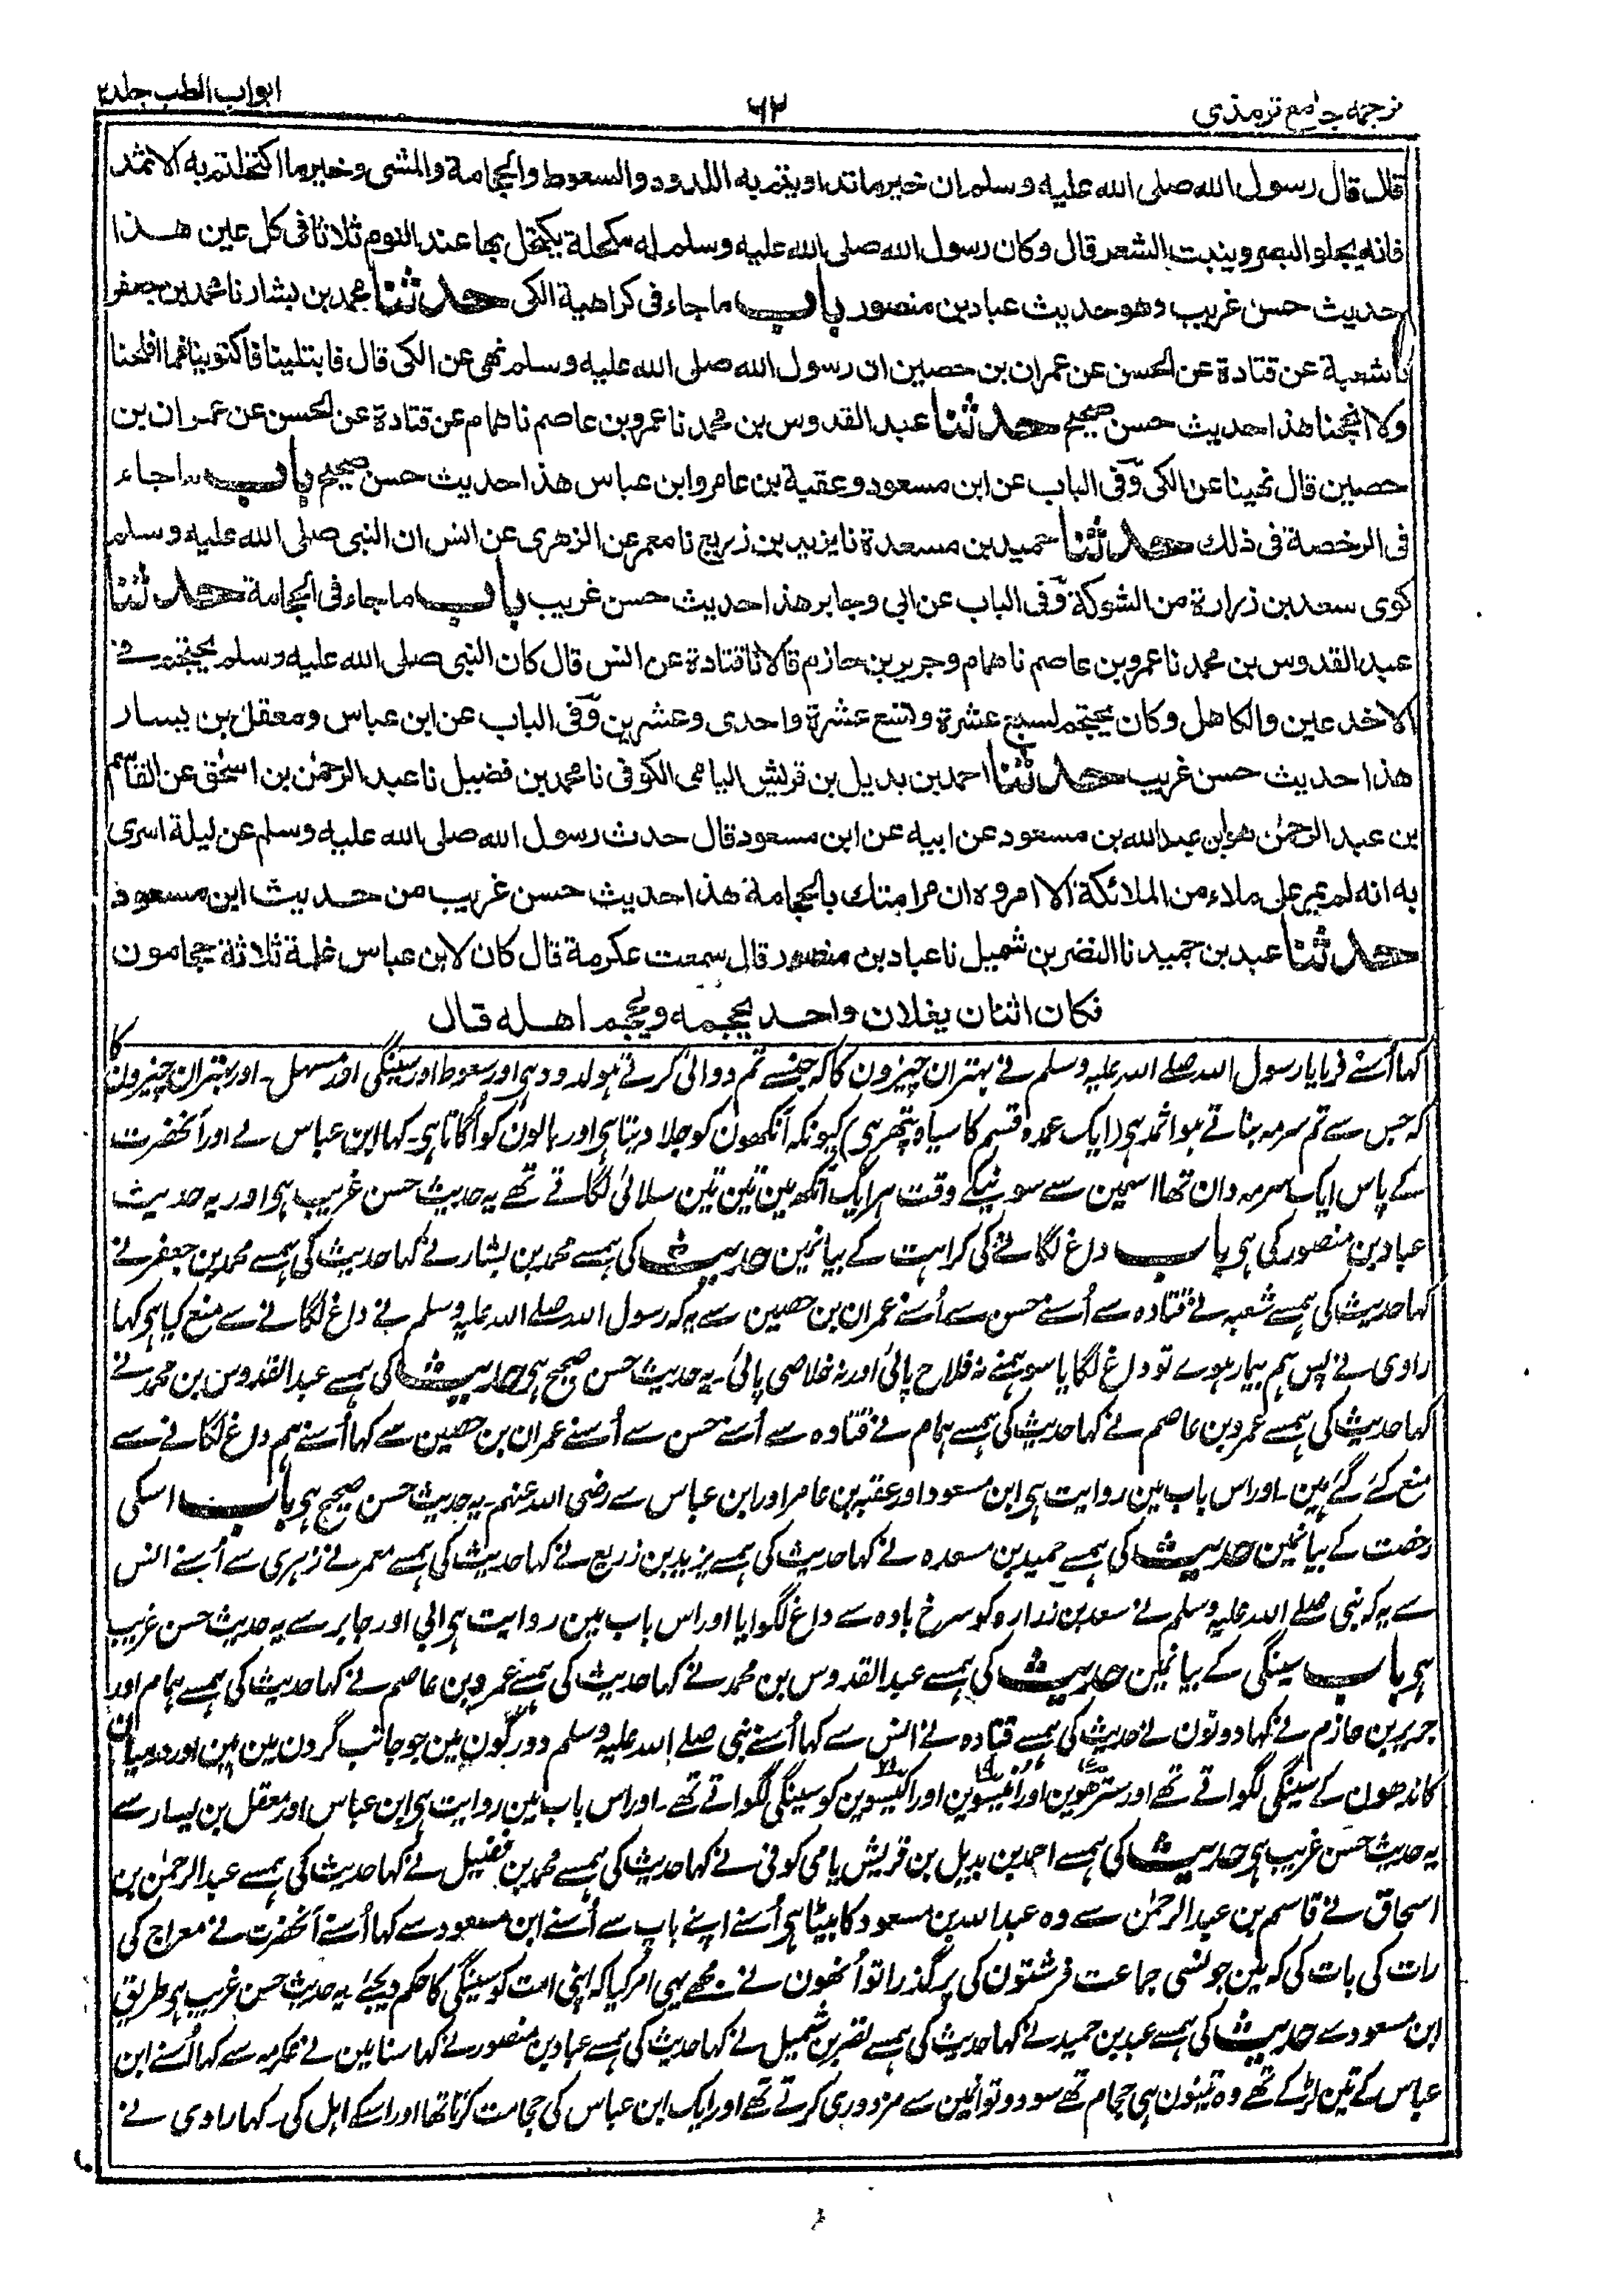 ترجمہ جامع ترمذی
۶۲
ابواب الطب جلد۲
قال قال رسول الله صلى الله عليه وسلم ان خير ما تداويتم به اللدود والسعوط والحجامة والمشى وخير ما اكتحلتم به الاثمد
فانه يجلو البصر وينبت الشعر قال وكان رسول الله صلى الله عليه وسلم له مكحلة يكتحل بها عند النوم ثلاثا فى كل عين هذا
حديث حسن غريب وهو حديث عباد بن منصور باب ما جاء فى كراهية الكى حدثنا محمد بن بشار نا محمد بن جعفر
نا شعبة عن قتادة عن الحسن عن عمران بن حصين ان رسول الله صلى الله عليه وسلم نهى عن الكى قال فابتلينا فاكتوينا فما افلحنا
ولا انجحنا هذا حديث حسن صحيح حدثنا عبد القدوس بن محمد نا عمرو بن عاصم نا همام عن قتادة عن الحسن عن عمران بن
حصين قال نهينا عن الكى وفى الباب عن ابن مسعود وعقبة بن عامر وابن عباس هذا حديث حسن صحيح باب ما جاء
فى الرخصة فى ذلك حدثنا حميد بن مسعدة نا يزيد بن زريع نا معمر عن الزهرى عن انس ان النبى صلى الله عليه وسلم
كوى سعد بن زرارة من الشوكة وفى الباب عن ابي وجابر هذا حديث حسن غريب باب ما جاء فى الحجامة حدثنا
عبد القدوس بن محمد نا عمرو بن عاصم نا همام وجرير بن حازم قالا نا قتادة عن انس قال كان النبى صلى الله عليه وسلم يحتجم فے
الاخدعين والكاهل وكان يحتجم لسبع عشرة وتسع عشرة واحدى وعشرين وفى الباب عن ابن عباس ومعقل بن يسار
هذا حديث حسن غريب حدثنا احمد بن بديل بن قريش اليامى الكوفى نا محمد بن فضيل نا عبد الرحمٰن بن اسحٰق عن القاسم
بن عبد الرحمٰن هو ابن عبد الله بن مسعود عن ابيه عن ابن مسعود قال حدث رسول الله صلى الله عليه وسلم عن ليلة اسرى
به انه لم يمر على ملاء من الملائكة الا امروه ان مر امتك بالحجامة هذا حديث حسن غريب من حديث ابن مسعود
حدثنا عبد بن حميد نا النضر بن شميل نا عباد بن منصور قال سمعت عكرمة قال كان لابن عباس غلمة ثلاثة حجامون
فكان اثنان يغلان واحد يحجمه ويحجم اهله قال
کہا اُسنے فرمایا رسول اللہ صلے اللہ علیہ وسلم نے بہتر ان چیزون کا کہ جنسے تم دوائی کرتے ہو لدود ہی اور سعوط اور سینگی اور مسہل۔ اور بہتر ان چیزون کا
کہ جس سے تم سرمہ بناتے ہو اثمد ہی (ایک عمدہ قسم کا سیاہ پتھر ہی) کیونکہ آنکھون کو جلا دیتا ہی اور بالون کو اُگاتا ہی۔ کہا ابن عباس نے اور آنحضرت
کے پاس ایک سرمہ دان تھا اسمین سے سونیکے وقت ہر ایک آنکھ مین تین تین سلائی لگاتے تھے یہ حدیث حسن غریب ہی اور یہ حدیث
عباد بن منصور کی ہی باب داغ لگانے کی کراہت کے بیانمین حدیث کی ہمسے محمد بن بشار نے کہا حدیث کی ہمسے محمد بن جعفر نے
کہا حدیث کی ہمسے شعبہ نے قتادہ سے اُسنے حسن سے اُسنے عمران بن حصین سے یہ کہ رسول اللہ صلے اللہ علیہ وسلم نے داغ لگانے سے منع کیا ہی کہا
راوی نے پس ہم بیمار ہوے تو داغ لگایا سو ہمنے نہ فلاح پائی اور نہ خلاصی پائی۔ یہ حدیث حسن صحیح ہی حدیث کی ہمسے عبد القدوس بن محمد نے
کہا حدیث کی ہمسے عمرو بن عاصم نے کہا حدیث کی ہمسے ہمام نے قتادہ سے اُسنے حسن سے اُسنے عمران بن حصین سے کہا اُسنے ہم داغ لگانے سے
منع کئے گئے ہین۔ اور اس باب مین روایت ہی ابن مسعود اور عقبہ بن عامر اور ابن عباس سے رضی اللہ عنہم۔ یہ حدیث حسن صحیح ہی باب اسکی
رخصت کے بیانمین حدیث کی ہمسے حمید بن مسعدہ نے کہا حدیث کی ہمسے یزید بن زریع نے کہا حدیث کی ہمسے معمر نے زہری سے اُسنے انس
سے یہ کہ نبی صلے اللہ علیہ وسلم نے سعد بن زرارہ کو سرخ بادہ سے داغ لگوایا اور اس باب مین روایت ہی ابی اور جابر سے یہ حدیث حسن غریب
ہی باب سینگی کے بیانمین حدیث کی ہمسے عبد القدوس بن محمد نے کہا حدیث کی ہمسے عمرو بن عاصم نے کہا حدیث کی ہمسے ہمام اور
جریر بن حازم نے کہا دونون نے حدیث کی ہمسے قتادہ نے انس سے کہا اُسنے نبی صلے اللہ علیہ وسلم دو رگون مین جو جانب گردن مین ہین اور درمیان
کاندھون کے سینگی لگواتے تھے اور سترھوین اور انیسوین اور اکیسوین کو سینگی لگواتے تھے۔ اور اس باب مین روایت ہی ابن عباس اور معقل بن یسار سے
یہ حدیث حسن غریب ہی حدیث کی ہمسے احمد بن بدیل بن قریش یامی کوفی نے کہا حدیث کی ہمسے محمد بن فضیل نے کہا حدیث کی ہمسے عبد الرحمٰن بن
اسحاق نے قاسم بن عبد الرحمٰن سے وہ عبد اللہ بن مسعود کا بیٹا ہی اُسنے اپنے باپ سے اُسنے ابن مسعود سے کہا اُسنے آنحضرت نے معراج کی
رات کی بات کی کہ مین جونسی جماعت فرشتون کی پر گذرا تو اُنھون نے مجھے یہی امر کیا کہ اپنی امت کو سینگی کا حکم دیجئے یہ حدیث حسن غریب ہی طریق
ابن مسعود سے حدیث کی ہمسے عبد بن حمید نے کہا حدیث کی ہمسے نضر بن شمیل نے کہا حدیث کی ہمسے عباد بن منصور نے کہا سنا مین نے عکرمہ سے کہا اُسنے ابن
عباس کے تین لڑکے تھے وہ تینون ہی حجام تھے سو دو تو انمین سے مزدوری کرتے تھے اور ایک ابن عباس کی حجامت کرتا تھا اور اسکے اہل کی۔ کہا راوی نے